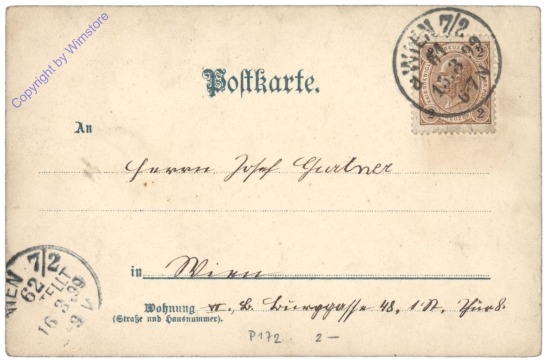 Copyright by Wimstore
WIEN 7/2
15.3.99
6-7 N
Postkarte.
An
Herrn Josef Gurtner
in Wien
Wohnung VII, B. Burggasse 48, 1. St.
(Straße und Hausnummer).
WIEN 7/2
62
16.3.99
9 V
P172. 2 –